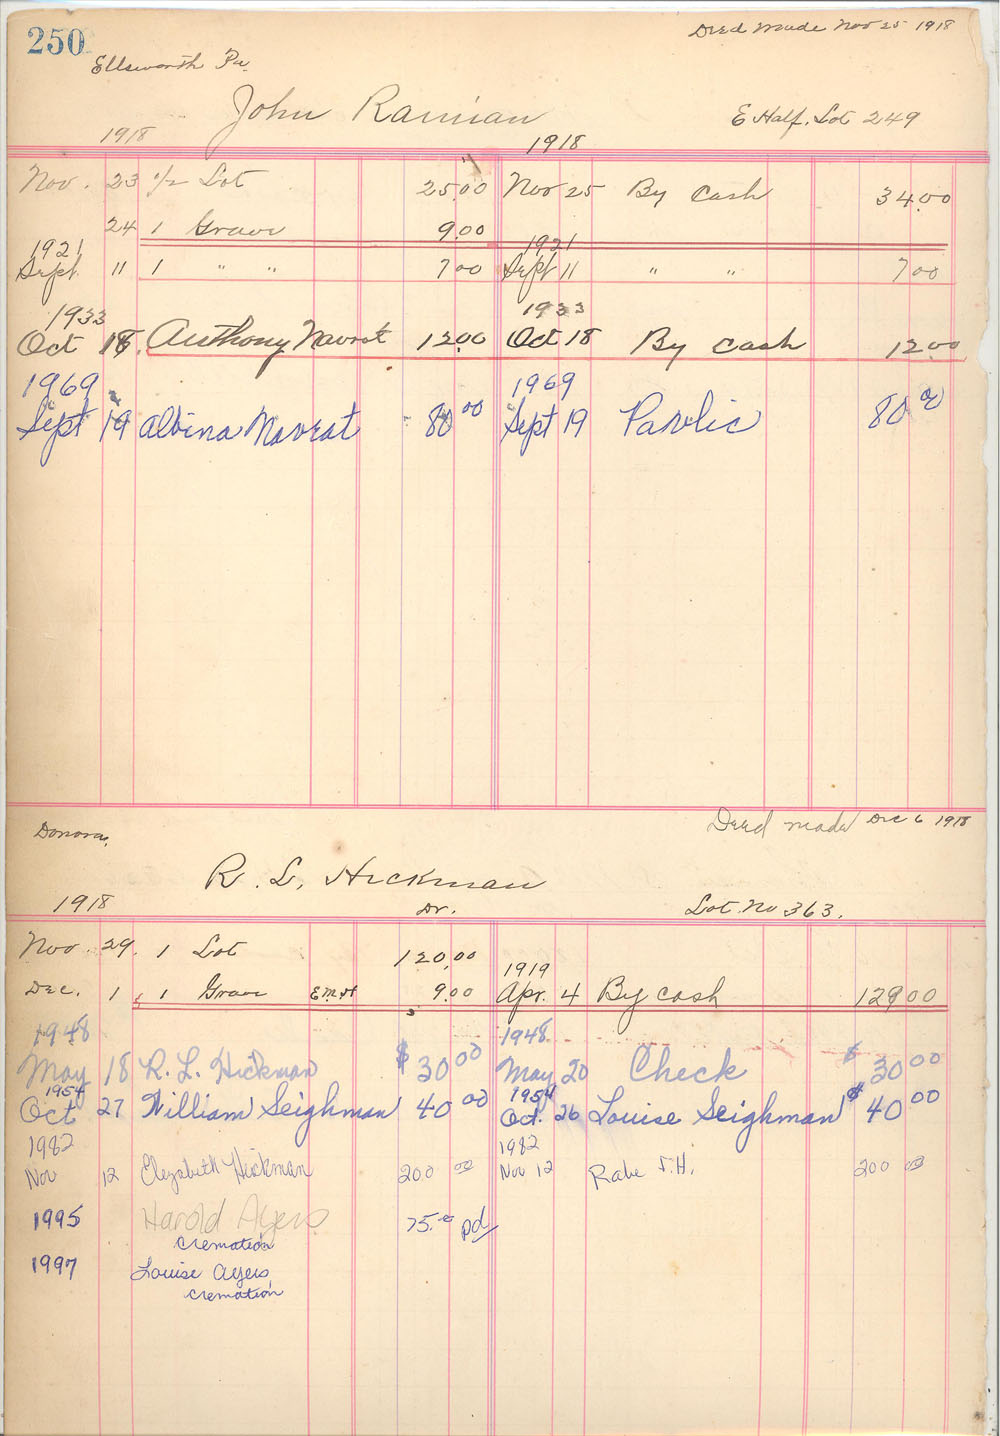 250
Deed Made Nov 25 1918
Ellsworth Pa
John
E Half. Lot 249
1918 1918
Nov. 23 1/2 Lot 25.00 Nov 25 By Cash 34.00
24 1 Grave 9.00
1921 1921
Sept. 11 1 " " 7 00 Sept 11 " " 7 00
1933 1933
Oct 18 Anthony Navrat 12.00 Oct 18 By Cash 12.00
1969 1969
Sept 19 Albina Navrat 80 00 Sept 19 Pavlic 80 00
Donora,
Deed made Dec 6 1918
R. L. Hickman
1918 Dr. Lot No 363.
Nov. 29. 1 Lot 120.00
1919
Dec. 1 1 Grave 9.00 Apr. 4 By cash 129 00
1948 1948
May 18 R. L. Hickman $30 00 May 20 Check $30 00
1954 1954
Oct 27 William Seighman 40 00 Oct. 26 Louise Seighman $40 00
1982 1982
Nov 12 Elizabeth Hickman 200 00 Nov 12 Rabe F.H. 200 00
1995 Harold Ayers 75.00 pd
cremation
1997 Louise Ayers
cremation